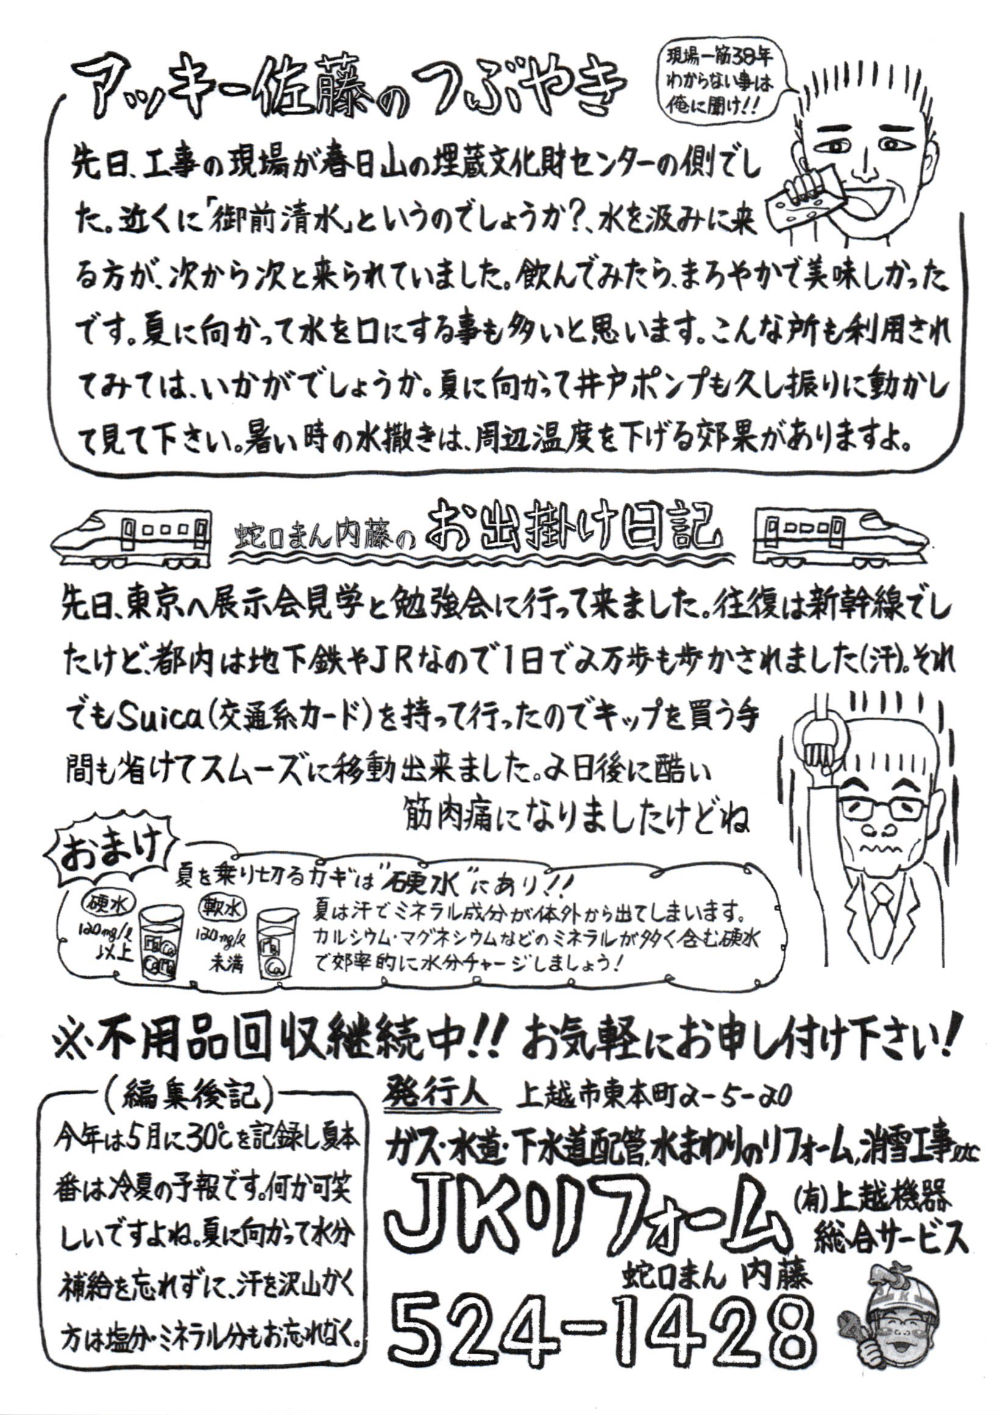 アッキー佐藤のつぶやき
現場一筋38年
わからない事は
俺に聞け!!
先日、工事の現場が春日山の埋蔵文化財センターの側でし
た。近くに「御前清水」というのでしょうか?、水を汲みに来
る方が、次から次と来られていました。飲んでみたら、まろやかで美味しかった
です。夏に向かって水を口にする事も多いと思います。こんな所も利用され
てみては、いかがでしょうか。夏に向かって井戸ポンプも久し振りに動かし
て見て下さい。暑い時の水撒きは、周辺温度を下げる効果がありますよ。
蛇口まん内藤のお出掛け日記
先日、東京へ展示会見学と勉強会に行って来ました。往復は新幹線でし
たけど、都内は地下鉄やJRなので1日で2万歩も歩かされました(汗)。それ
でもSuica(交通系カード)を持って行ったのでキップを買う手
間も省けてスムーズに移動出来ました。2日後に酷い
筋肉痛になりましたけどね
おまけ
夏を乗り切るカギは"硬水"にあり!!
硬水
120mg/ℓ
以上
Mg Ca
Ca Mg
軟水
120mg/ℓ
未満
Mg
Ca
夏は汗でミネラル成分が体外から出てしまいます。
カルシウム・マグネシウムなどのミネラルが多く含む硬水
で効率的に水分チャージしましょう!
※不用品回収継続中!! お気軽にお申し付け下さい!
(編集後記)
今年は5月に30℃を記録し夏本
番は冷夏の予報です。何か可笑
しいですよね。夏に向かって水分
補給を忘れずに、汗を沢山かく
方は塩分・ミネラル分もお忘れなく。
発行人 上越市東本町2-5-20
ガス・水道・下水道配管、水まわりのリフォーム、消雪工事etc
JKリフォーム
(有)上越機器
総合サービス
蛇口まん 内藤
524-1428